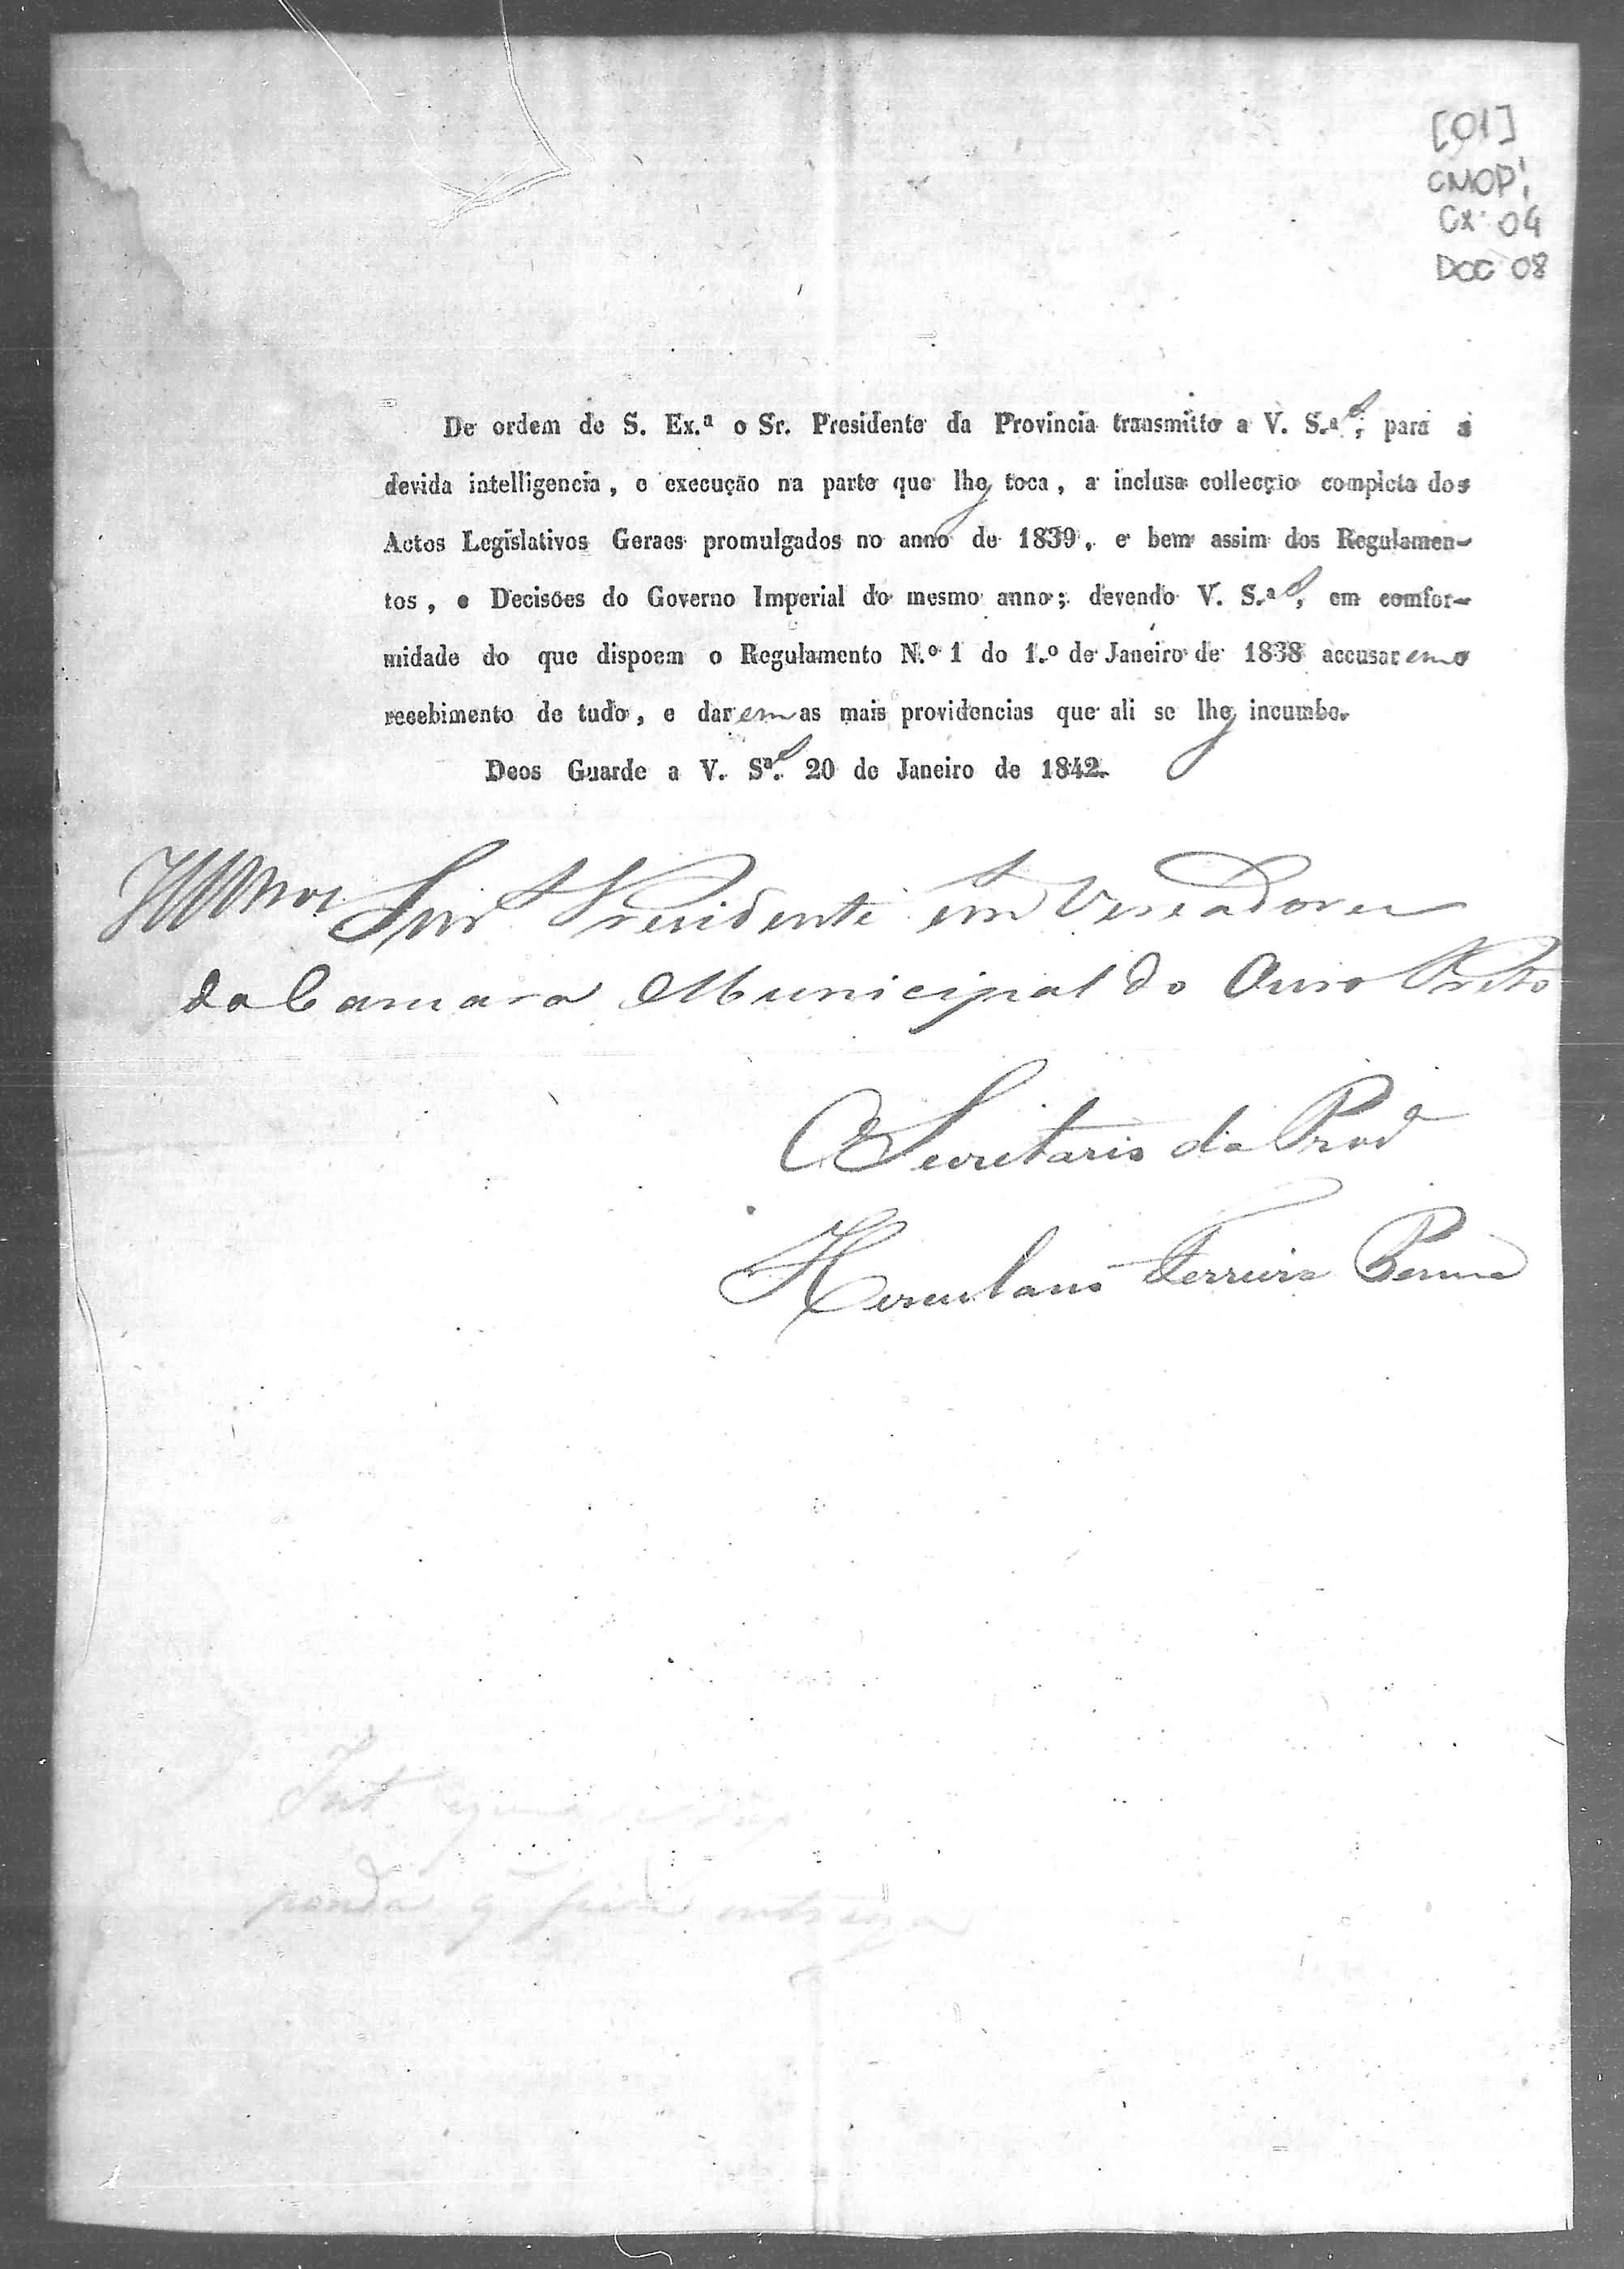 [01]
CMOP
Cx. 04
DOC 08
De ordem de S. Ex.ª o Sr. Presidente da Provincia transmitto a V. S.ªs, para a
devida intelligencia, e execução na parte que lhes toca, a inclusa collecção completa dos
Actos Legislativos Geraes promulgados no anno de 1839, e bem assim dos Regulamen-
tos, e Decisões do Governo Imperial do mesmo anno; devendo V. S.ªs, em comfor-
midade do que dispoem o Regulamento N.º 1 do 1.º de Janeiro de 1838 accusarem o
recebimento de tudo, e darem as mais providencias que ali se lhes incumbe.
Deos Guarde a V. Sªs. 20 de Janeiro de 1842.
Illmos Snrs Presidente em Vereadores
da Camara Municipal do Ouro Preto
O Secretario da Prova
Herculano Ferreira Penna